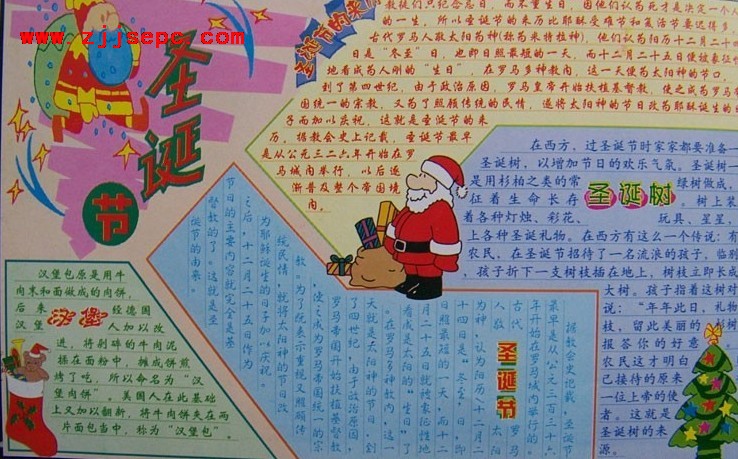 www.zjjsepc.com
圣诞节
圣诞节的来
教徒们只纪念忌日,而不重生日,因他们认为死才是决定一个人
的一生,所以圣诞节的来历比耶稣受难节和复活节要迟得多。
古代罗马人敬太阳为神(称为米特拉神),他们认为阳历十二月二十四
日是“冬至”日,也即日照最短的一天,而十二月二十五日便被象征性
地看成为人刚的“生日”,在罗马多神教内,这一天便为太阳神的节日,
到了第四世纪,由于政治原因,罗马皇帝开始扶植基督教,使之成为罗马帝
国统一的宗教,又为了照顾传统的民情,遂将太阳神的节日改为耶稣诞生的日
子而加以庆祝,这就是圣诞节的来
历,据教会史上记载,圣诞节最早
是从公元三二六年开始在罗
马城内举行,以后逐
渐普及整个帝国境
内。
在西方,过圣诞节时家家都要准备一
圣诞树,以增加节日的欢乐气氛。圣诞树一
是用杉柏之类的常绿树做成,
征着生命长存
圣诞树
树上装
着各种灯烛、彩花、玩具、星星,
上各种圣诞礼物。在西方有这么一个传说:有
农民,在圣诞节招待了一名流浪的孩子,临别
,孩子折下一支树枝插在地上,树枝立即长成
大树。孩子指着这树对
说:“年年此日,礼物
枝,留此美丽的杉树
报答你的好意。
农民这才明白
己接待的原来
一位上帝的使
者。这就是
圣诞树的来
源。
汉堡包原是用牛
肉末和面做成的肉饼,
后来经德国
汉堡人加以改
汉堡
进,将剁碎的牛肉末
揉在面粉中,摊成饼煎
烤了吃,所以命名为“汉
堡肉饼”。美国人在此基础
上又加以翻新,将牛肉饼夹在两
片面包当中,称为“汉堡包”。
圣诞节
据教会史记载,圣诞节
最早是从公元三百三十六
年开始在罗马城内举行的。
古代罗马
人敬太阳
为神,认为阳历十二月二
十四日是“冬至”日,即
日照最短的一天,而十二
月二十五日就被象征性地
看成是太阳的“生日”了
。在罗马多神教内,这一
天就是太阳神的节日,到
了四世纪,由于政治原因,
罗马帝国开始扶植基督教
,使之成为罗马帝国统一的宗
教。为了既表示重视又照顾传
统民情,就将太阳神的节日改
为耶稣诞生的日子加以庆祝。
之后,十二月二十五日作为
节日的主要内容就完全是基
督教的了。这就是圣
诞节的由来。